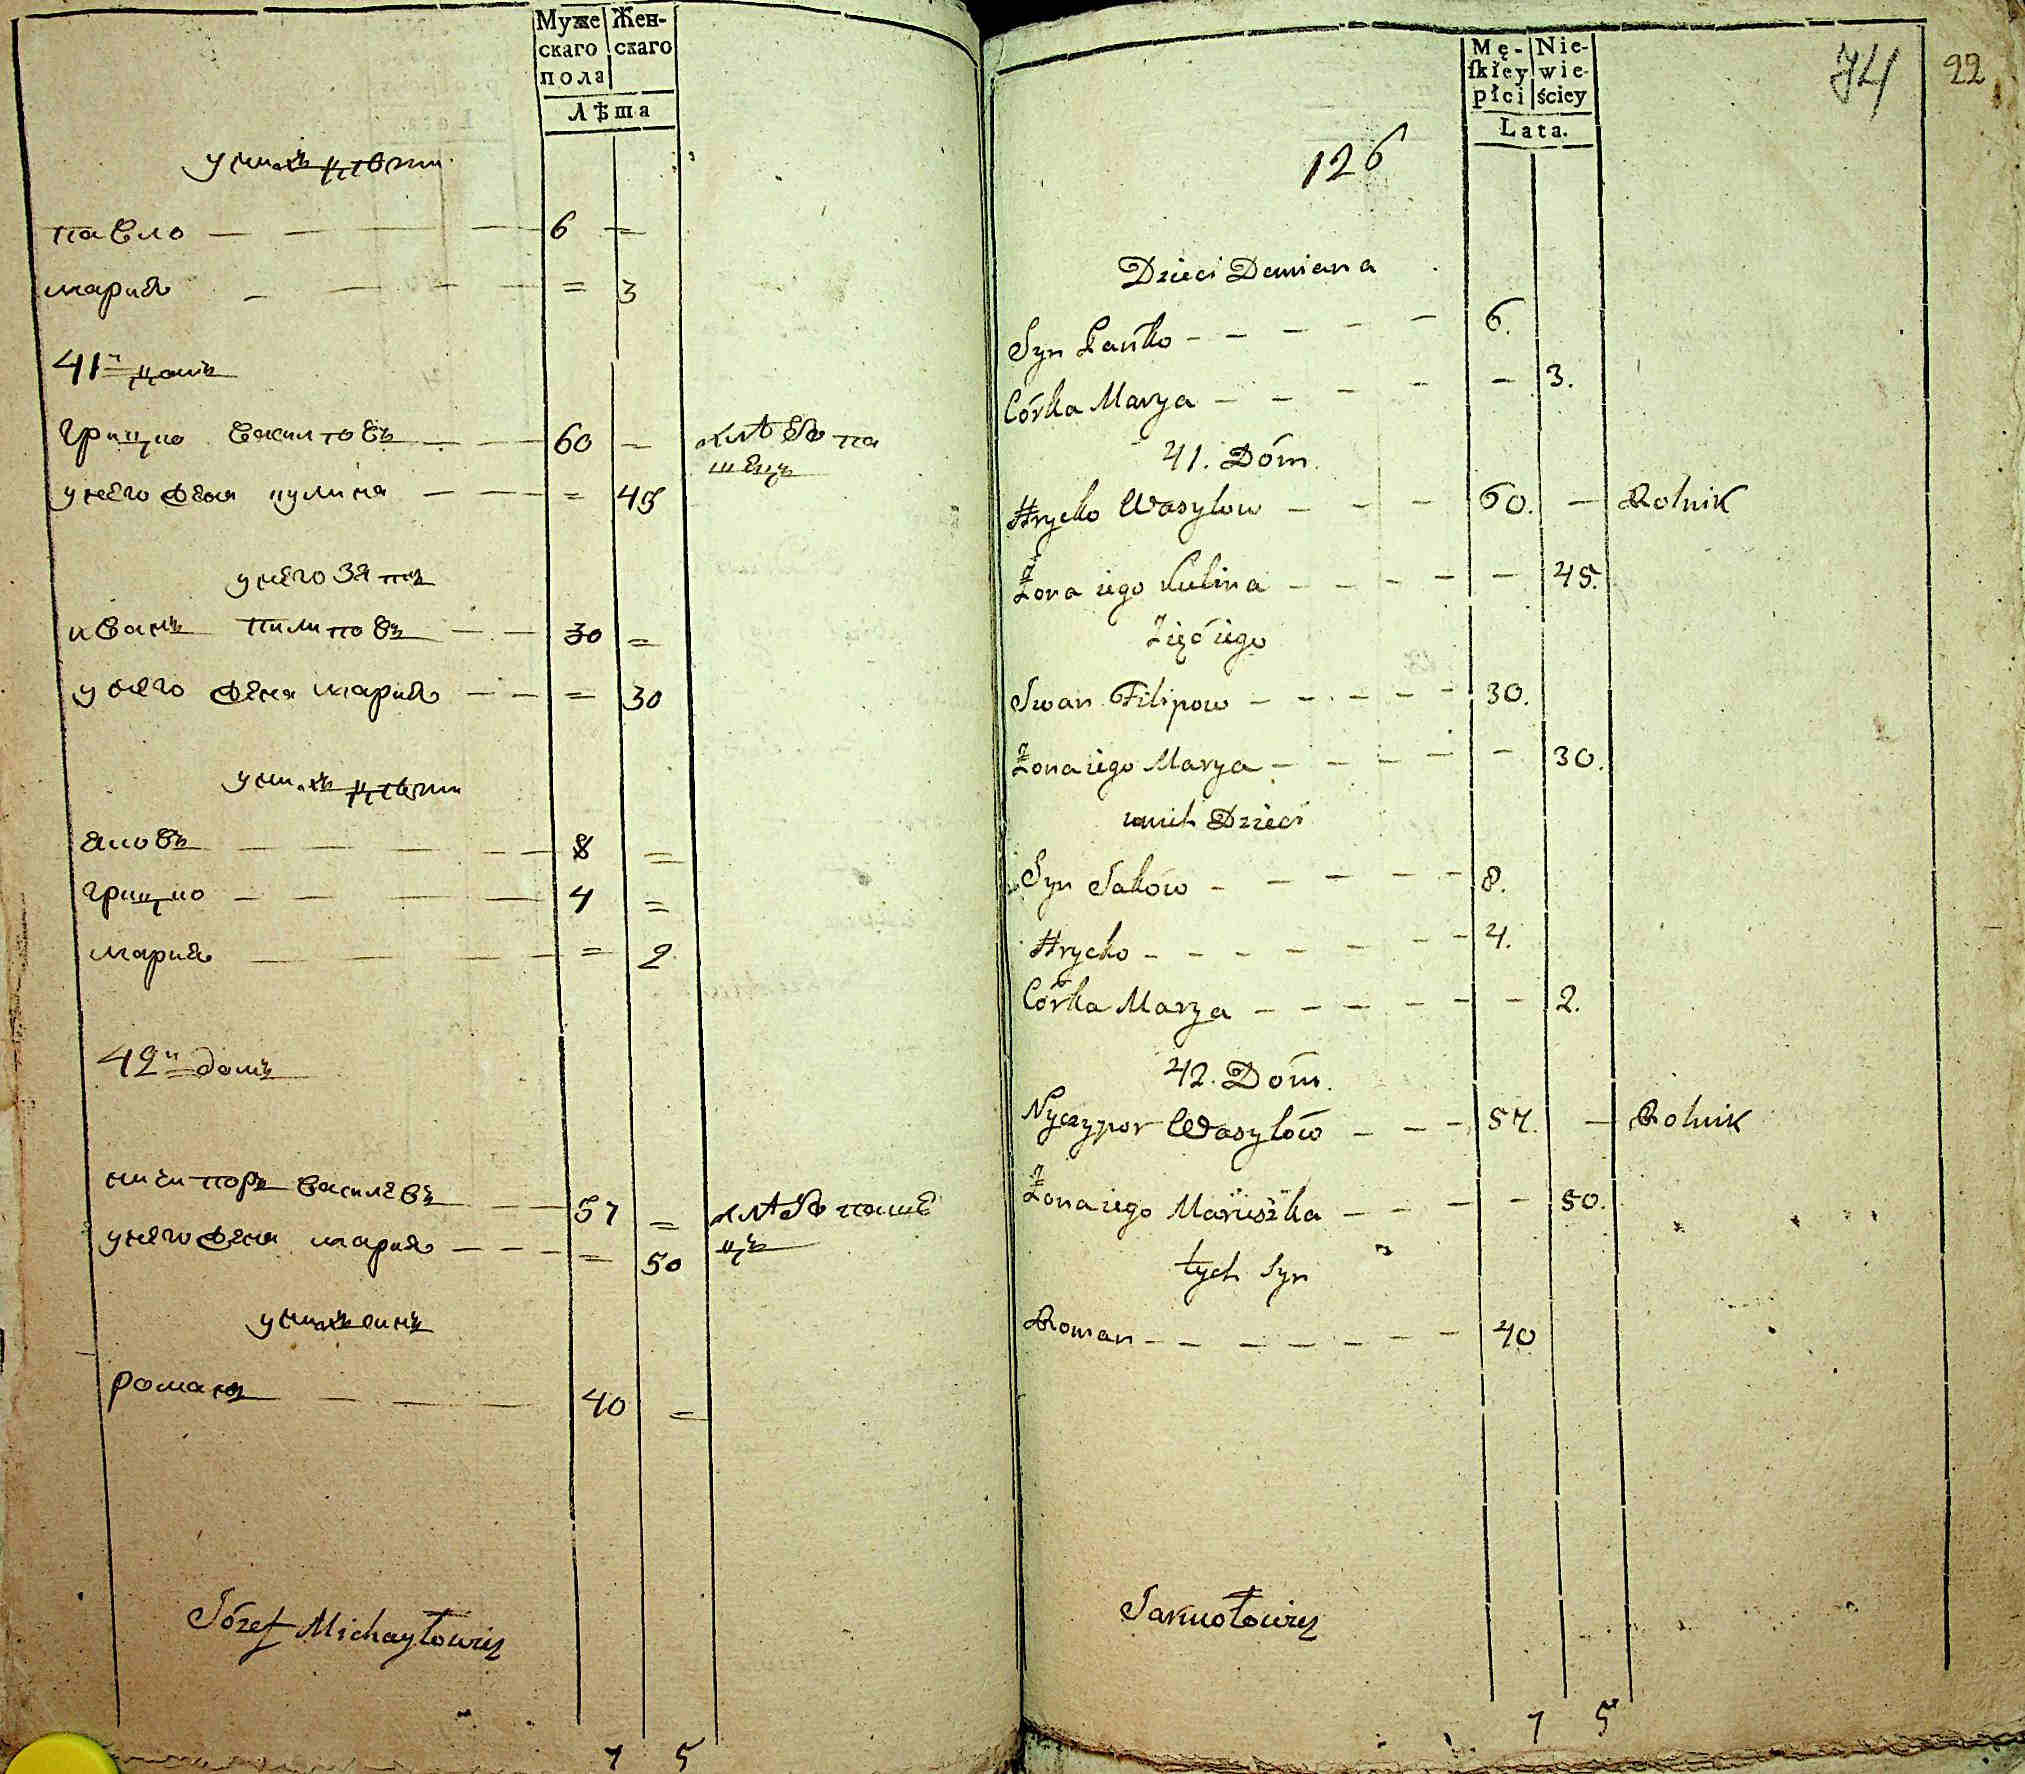 Муже Жен-
скаго скаго
пола
Лѣта
у нихъ дѣти
павло — — — — 6 —
мария — — — — = 3
41й домъ
грицко василювъ — — 60 — хлѣбо па
шецъ
у него жена кулина — — = 45
у него зять
иванъ пилиповъ — — 30 =
у него жена мария — — = 30
у нихъ дѣти
яковъ — — — — 8 =
грицко — — — — 4 =
мария — — — — = 2
42й домъ
ничипоръ василевъ — — 57 = хлѣбо паше
цъ
у него жена мария — — — = 50
у нихъ синъ
романъ — — — 40 =
Józef Michayłowicz
7 5
74 22
Mę- Nie-
ſkiey wie-
płci ściey
Lata.
126
Dzieci Demiana
Syn Pańko — — — — — 6.
Córka Marya — — — — — 3.
41. Dóm
Hrycko Wasylow — — — 60. — Rolnik
Żona iego Kulina — — — — — 45.
Zięć iego
Iwan Filipow — — — — — 30.
Żona iego Marya — — — — — 30.
u nich Dzieci
Syn Jaków — — — — — 8.
Hrycko — — — — — — 4.
Córka Marya — — — — — — 2.
42. Dóm.
Nyczypor Wasylów — — — 57. — Rolnik
Żona iego Maruszka — — — — 50.
tych Syn
Roman — — — — — — 40
7 5